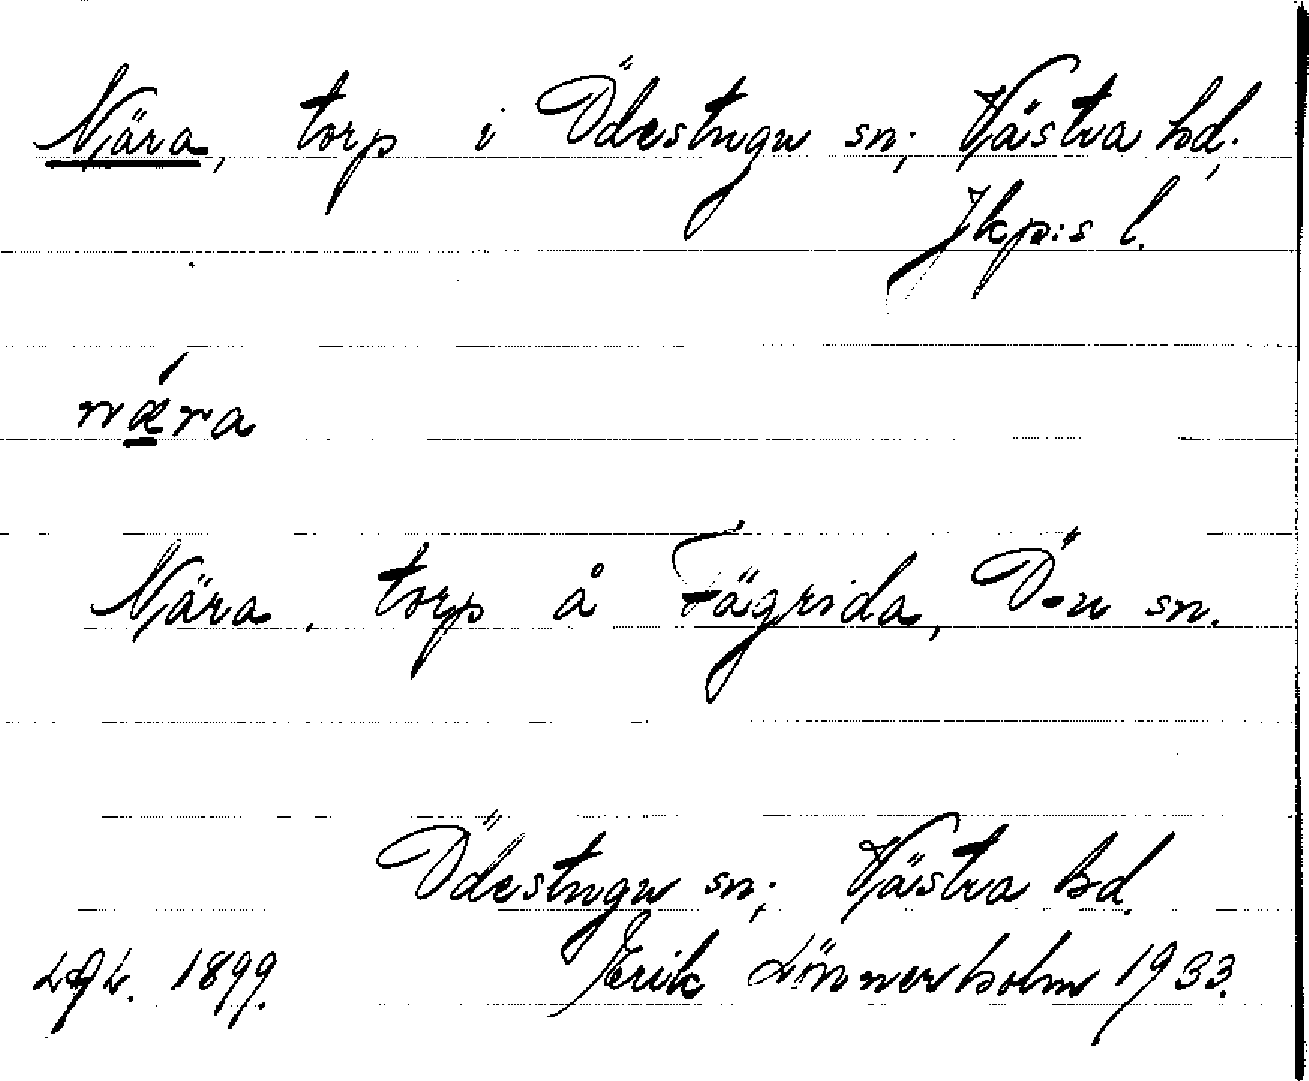 Nära, torp i Ödestugu sn; Västra hd;
Jkp:s l.
nǽra
Nära, torp å Fägrida, Ö-u sn.
Ödestugu sn; Västra hd.
1899. Erik Lönnerholm 1933.